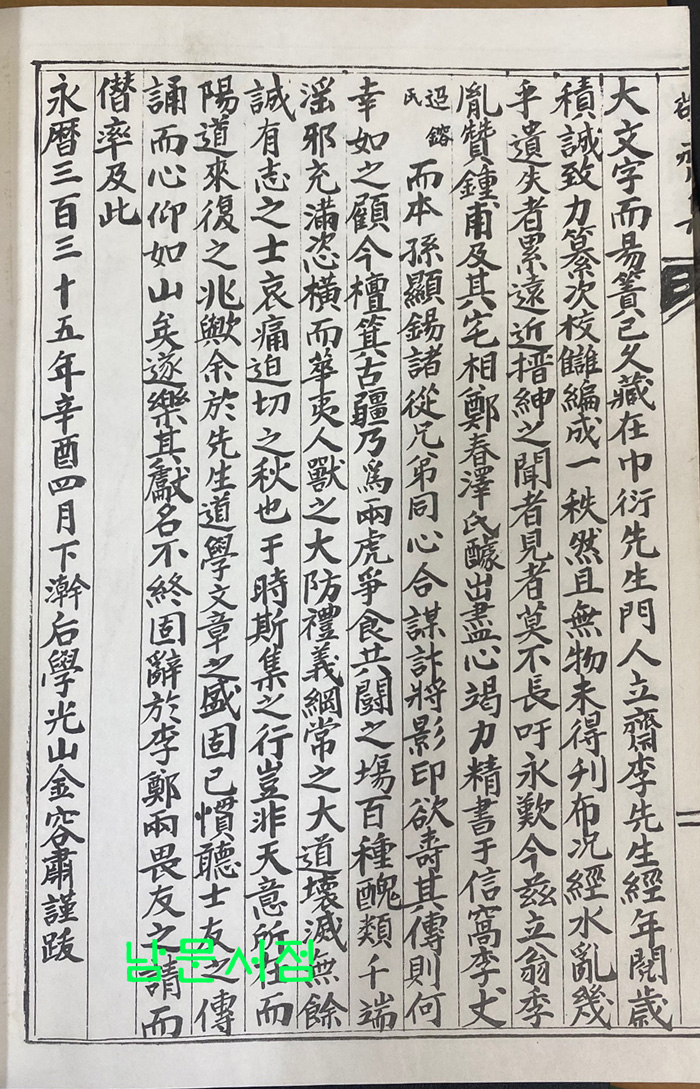 大文字而易簀已久藏在巾衍先生門人立齋李先生經年閱歲
積誠致力纂次校讎編成一秩然且無物未得刋布况經水亂幾
乎遺失者累遠近搢紳之聞者見者莫不長吁永歎今玆立翁季
胤贊鍾甫及其宅相鄭春澤氏醵出盡心竭力精書于信窩李丈
鎔氏而本孫顯錫諸從兄弟同心合謀計將影印欲壽其傳則何
幸如之顧今檀箕古疆乃爲兩虎爭食共鬪之塲百種醜類千端
滛邪充滿恣橫而華夷人獸之大防禮義綱常之大道壞滅無餘
誠有志之士哀痛迫切之秋也于時斯集之行豈非天意所在而
陽道來復之兆歟余於先生道學文章之盛固已慣聽士友之傳
誦而心仰如山矣遂樂其獻名不終固辭於李鄭兩畏友之請而
僭率及此
永曆三百三十五年辛酉四月下澣后學光山金容肅謹跋
남문서점